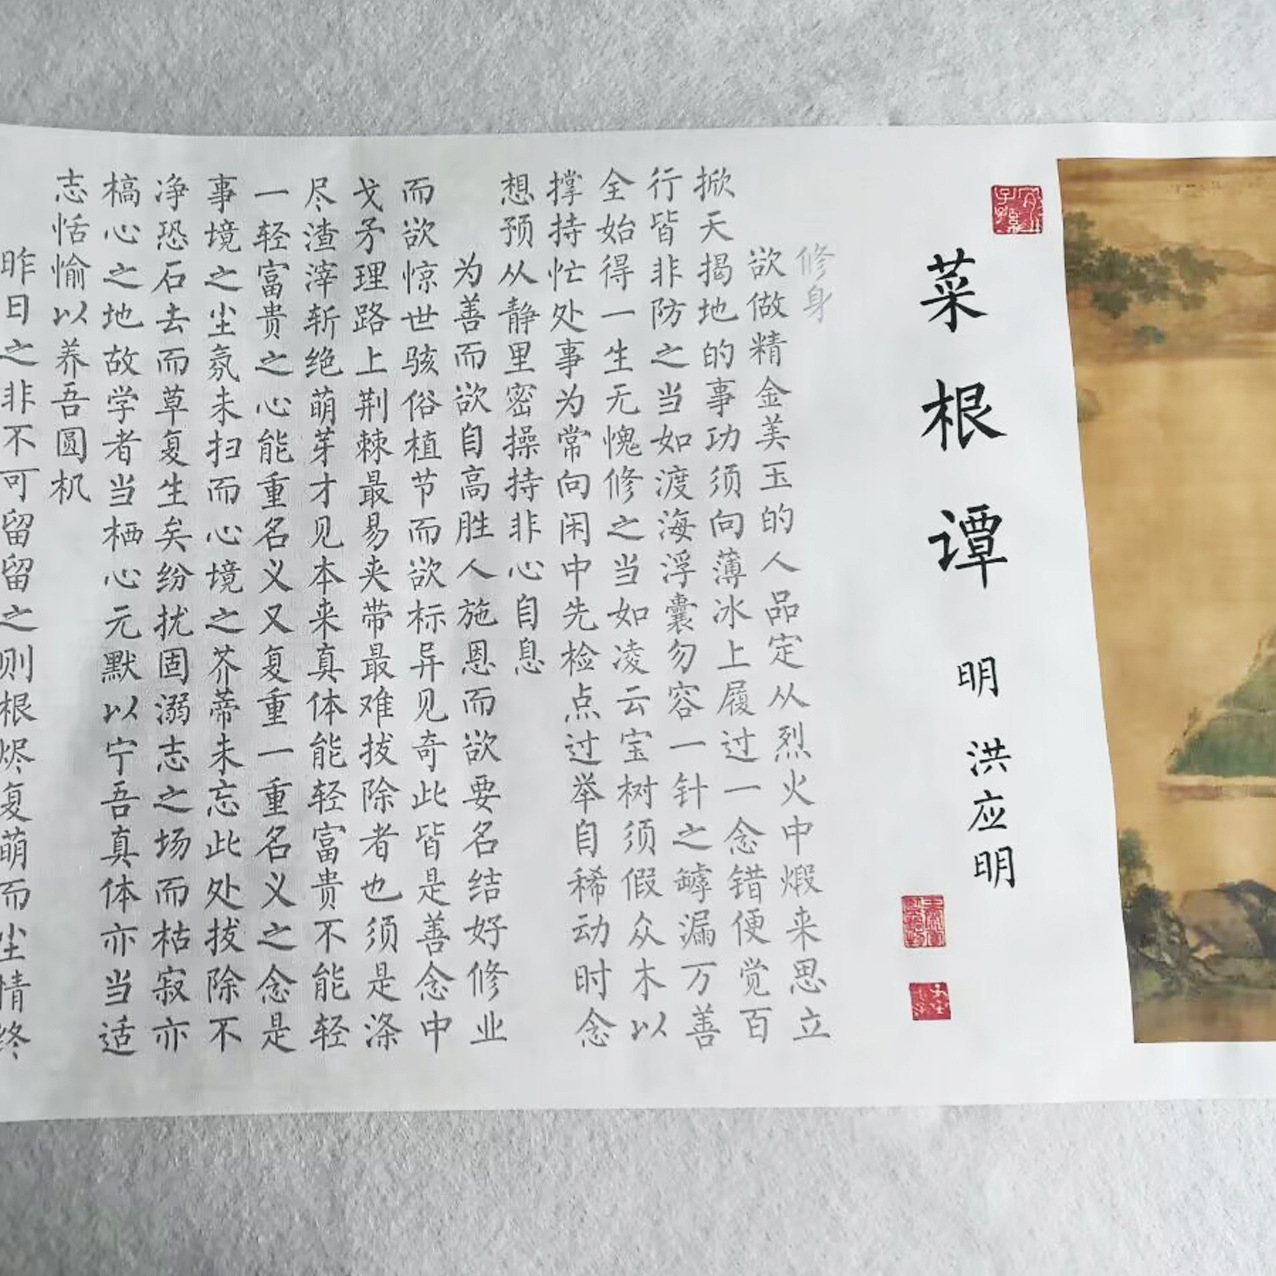 菜根谭
明 洪应明
修身
欲做精金美玉的人品定从烈火中煅来思立
掀天揭地的事功须向薄冰上履过一念错便觉百
行皆非防之当如渡海浮囊勿容一针之罅漏万善
全始得一生无愧修之当如凌云宝树须假众木以
撑持忙处事为常向闲中先检点过举自稀动时念
想预从静里密操持非心自息
为善而欲自高胜人施恩而欲要名结好修业
而欲惊世骇俗植节而欲标异见奇此皆是善念中
戈矛理路上荆棘最易夹带最难拔除者也须是涤
尽渣滓斩绝萌芽才见本来真体能轻富贵不能轻
一轻富贵之心能重名义又复重一重名义之念是
事境之尘氛未扫而心境之芥蒂未忘此处拔除不
净恐石去而草复生矣纷扰固溺志之场而枯寂亦
槁心之地故学者当栖心元默以宁吾真体亦当适
志恬愉以养吾圆机
昨日之非不可留留之则根烬复萌而尘情终